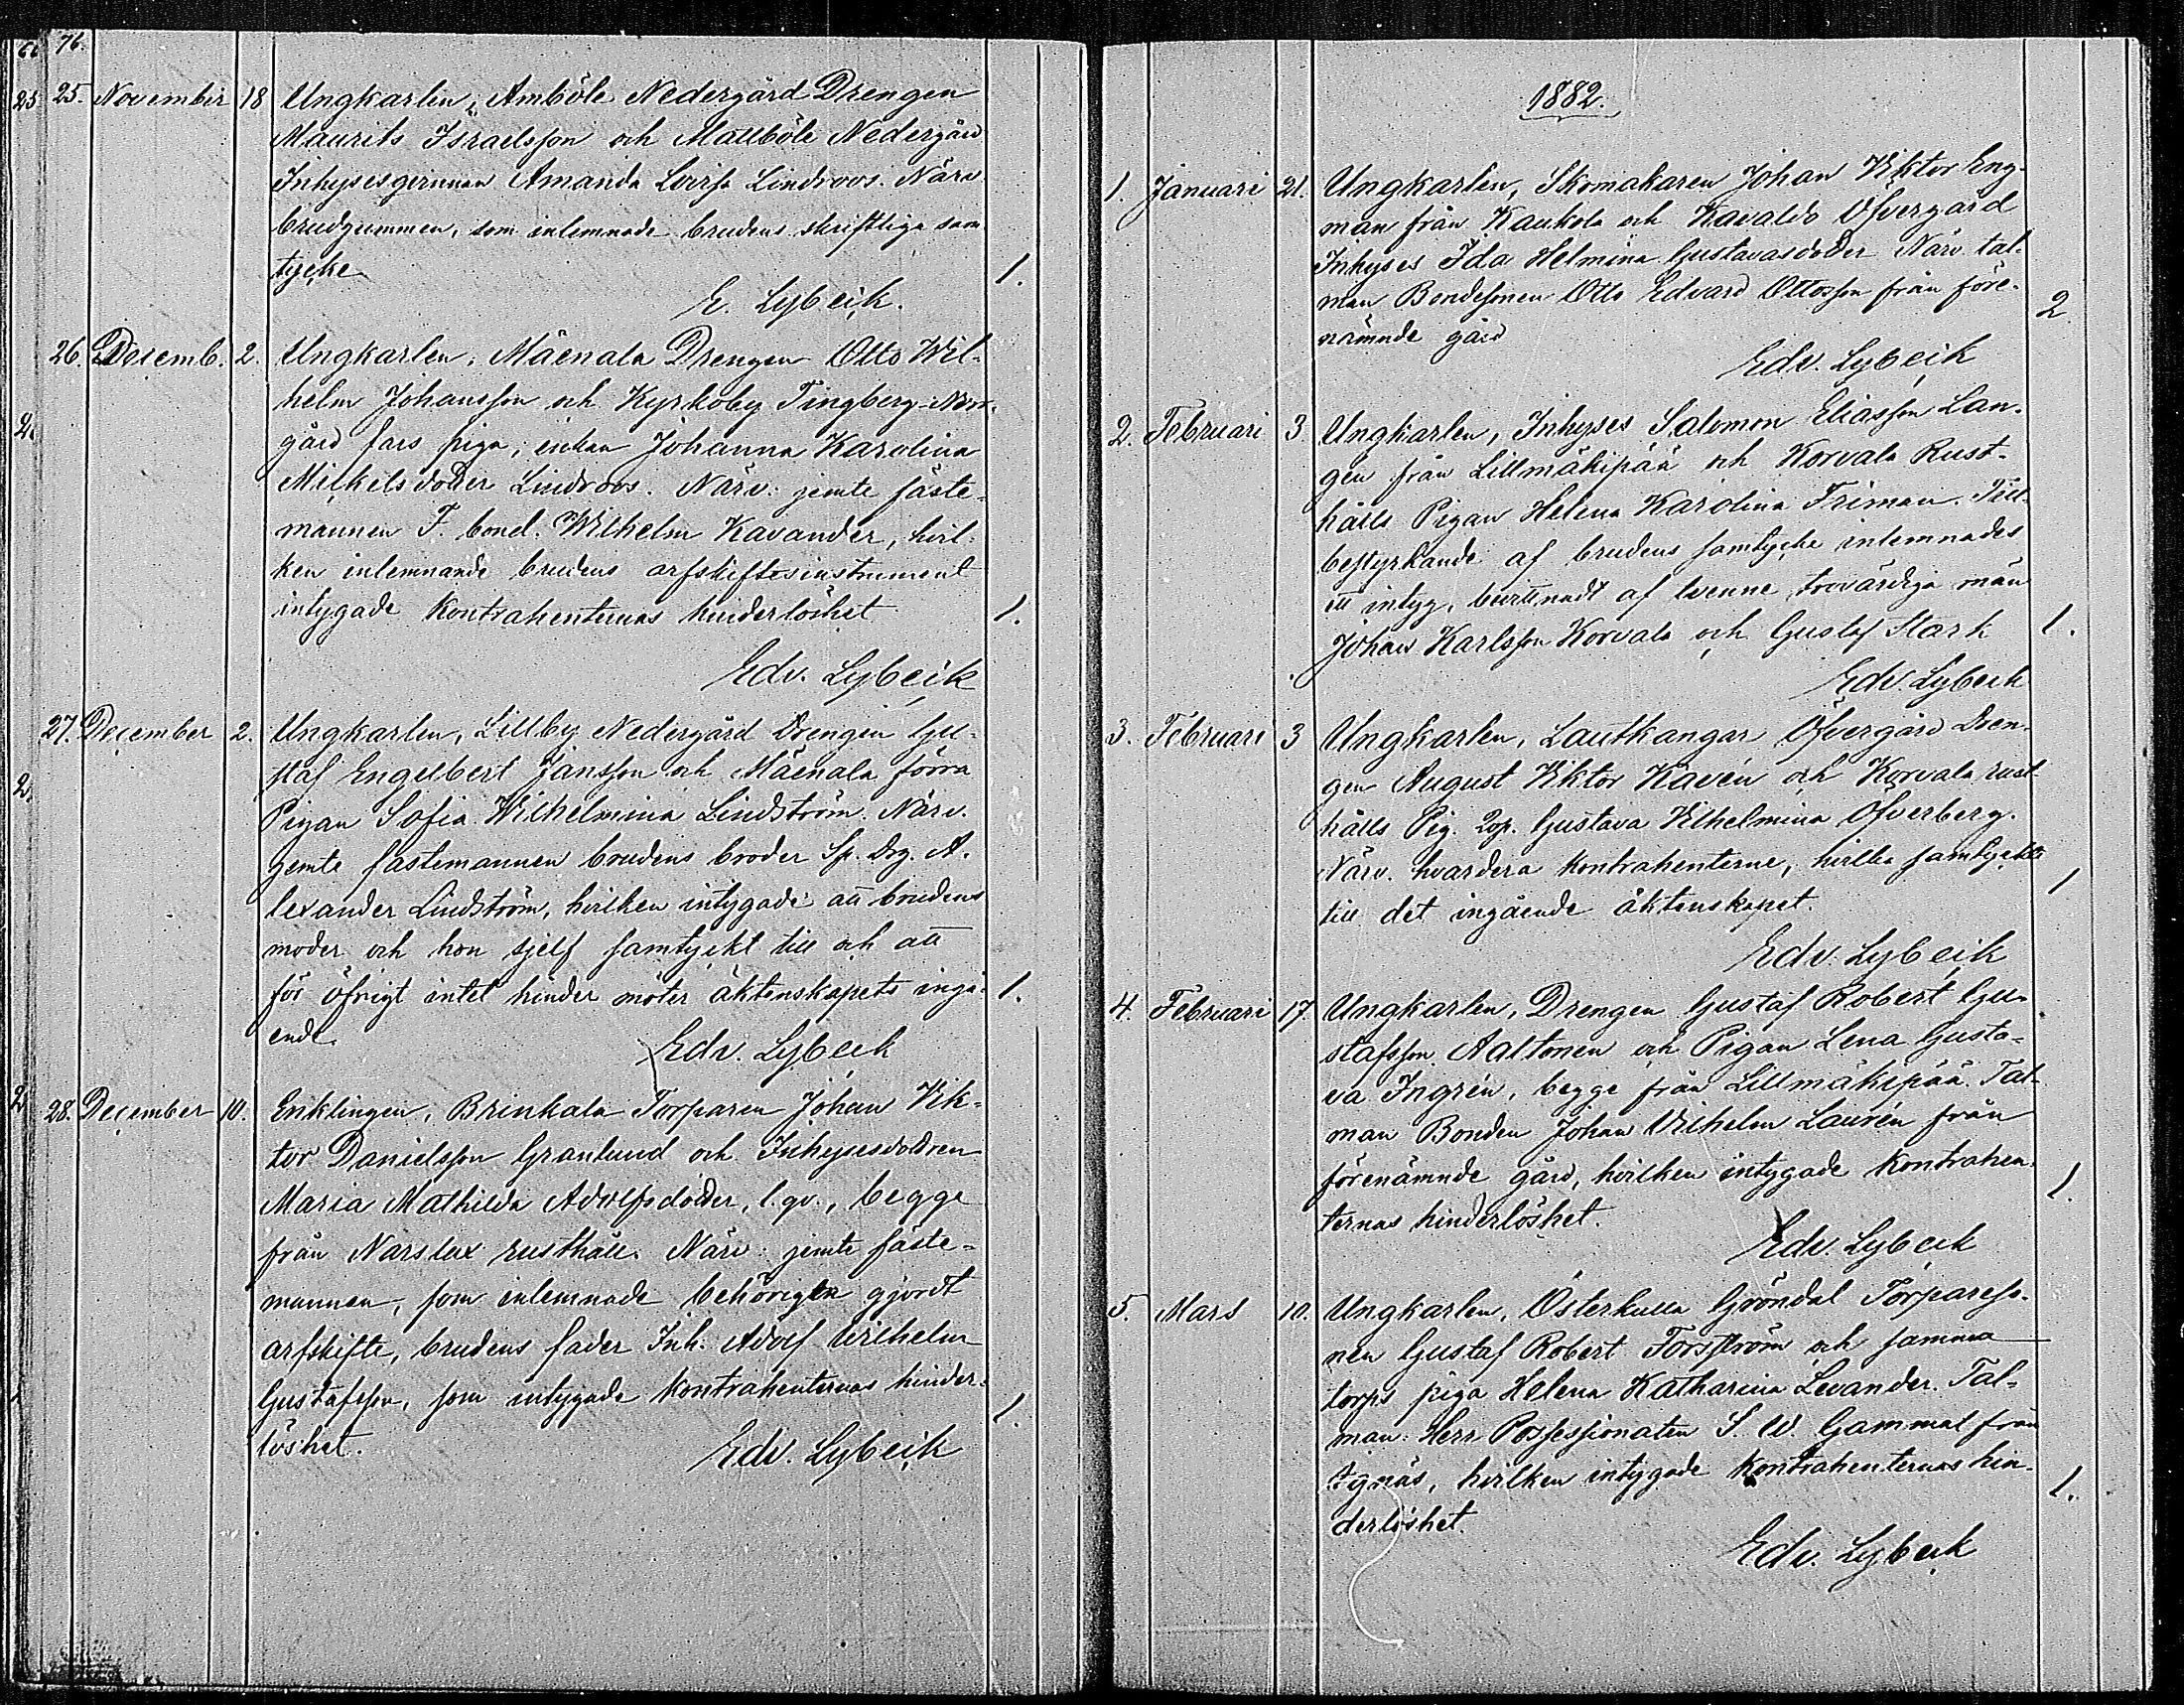 76.
25. November 18 Ungkarlen, Amböle Nedergård Drengen
Maurits Israelsson och Mattböle Nedergård
Inhysesqvinnan Amanda Lovisa Lindroos. Närv.
brudgummen, som inlemnade brudens skriftliga sam
tycke 1.
E. Lybeck.
26. Decemb. 2. Ungkarlen, Mäenala Drengen Otto Wil-
helm Johansson och Kyrkoby Tingberg
gård fars piga, enkan Johanna Karolina
Mickelsdotter Lindroos. Närv. jemte fäste-
mannen F. bond. Wilhelm Kavander, hvil-
ken inlemnande brudens arfskiftesinstrument
intygade Kontrahenternas hinderlöshet 1.
Edv. Lybeck
27. December 2. Ungkarlen, Lillby Nedergård Drengen Gu-
staf Engelbert Jansson och Mäenala förra
Pigan Sofia Wilhelmina Lindström. Närv.
jemte fästemannen brudens broder Sp. Drg. A-
lexander Lindström, hvilken intygade att brudens
moder och hon sjelf samtyckt till och att
för öfrigt intet hinder möter äktenskapets ingå- 1.
ende.
Edv. Lybeck
28. December 10. Enklingen, Brinkala Torparen Johan Vik-
tor Danielsson Granlund och Inhysesdottren
Maria Mathilda Adolfsdotter, l. qv., begge
från Narslax rusthåll. Närv. jemte fäste-
mannen, som inlemnade behörigen gjordt
arfskifte, brudens fader Inh. Adolf Wilhelm
Gustafsson, som intygade Kontrahenternas hinder- 1.
löshet.
Edv. Lybeck
1882.
1. Januari 21. Ungkarlen, Skomakaren Johan Viktor Eng-
man från Kaukola och Kavaldo Öfvergård
Inhyses Ida Helmina Gustavasdotter Närv. tal-
man Bondesonen Otto Edvard Ottosson från före- 2
nämnde gård
Edv. Lybeck
2. Februari 3 Ungkarlen, Inhyses Salomon Eliasson Lan-
gen från Lillmäkipää och Korvala Rust-
hålls Pigan Helena Karolina Friman. Till
bestyrkande af brudens samtycke inlemnades
ett intyg, bevittnadt af tvenne trovärdiga män
Johan Karlsson Korvala och Gustaf Stark 1.
Edv. Lybeck
3. Februari 3 Ungkarlen, Lautkangar Öfvergård Dren-
gen August Viktor Kavén och Korvala rust-
hålls Pig. Gustava Vilhelmina Öfverberg.
Närv. hvardera kontrahenterne, hvilka samtyckte 1
till det ingående äktenskapet.
Edv. Lybeck
4. Februari 17. Ungkarlen, Drengen Gustaf Robert Gu-
stafsson Aaltonen och Pigan Lena Gusta-
va Ingrén, begge från Lillmäkipää. Tal-
man Bonden Johan Vilhelm Laurén från
förenämnde gård, hvilken intygade Kontrahen- 1.
ternas hinderlöshet.
Edv. Lybeck
5. Mars 10. Ungkarlen, Österkulla Gröndal Torpareso-
nen Gustaf Robert Forsström och samma
torps piga Helena Katharina Levander. Tal-
man: Herr Possessionaten S. W. Gammal från
hvilken intygade Kontrahenternas hin- 1.
derlöshet.
Edv. Lybeck